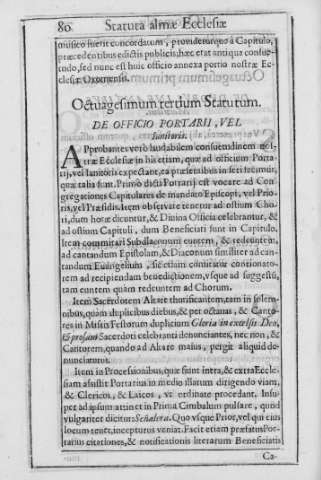 80 Statuta almæ Ecclesiæ
musico fuerit concordatum, provideturque à Capitulo,
præcedentibus edictis publicis, hæc erat antiqua consue-
tudo, sed nunc est huic officio annexa portio nostræ Ec-
clesiæ Oxomensis.
Octuagesimum tertium Statutum.
DE OFFICIO PORTARII, VEL
Ianitoris.
APprobantes verò laudabilem consuetudinem nos-
træ Ecclesiæ in his etiam, quæ ad officium Porta-
rij, vel Ianitoris expectant, ea præsentibus in seri fecimus,
quæ talia sunt. Primo dicti Portarij est vocare ad Con-
gregationes Capitulares de mandato Episcopi, vel Prio-
ris, vel Præsidis. Item observare tenetur ad ostium Cho-
ri, dum horæ dicuntur, & Divina Officia celebrantur, &
ad ostium Capituli, dum Beneficiati sunt in Capitulo.
Item commitari Subdiaconum euntem, & redeuntem,
ad cantandum Epistolam, & Diaconum similiter ad can-
tandum Euangelium, sic etiam comitatur contionato-
rem ad recipiendam benedictionem, vsque ad suggestū,
tam euntem quàm redeuntem ad Chorum.
Item Sacerdotem Altare thurificantem, tam in solem-
nibus, quàm duplicibus diebus, & per octauas, & Canto-
res in Missis Festorum duplicium Gloria in excelsis Deo,
& prosam Sacerdoti celebranti denunciantes, nec non, &
Cantorem, quando ad Altare maius, pergit aliquid de-
nunciaturus.
Item in Processionibus, quæ fiunt intra, & extra Eccle-
siam assistit Portarius in medio illarum dirigendo viam,
& Clericos, & Laicos, vt ordinatè procedant. Insu-
per ad ipsum attinet in Prima Cimbalum pulsare, quod
vulgariter dicitur: Señalera. Quo vsque Prior, vel qui eius
locum tenet, incepturus veniat. Facit etiam præfatus Por-
tarius citationes, & notificationis literarum Beneficiatis
Ca-